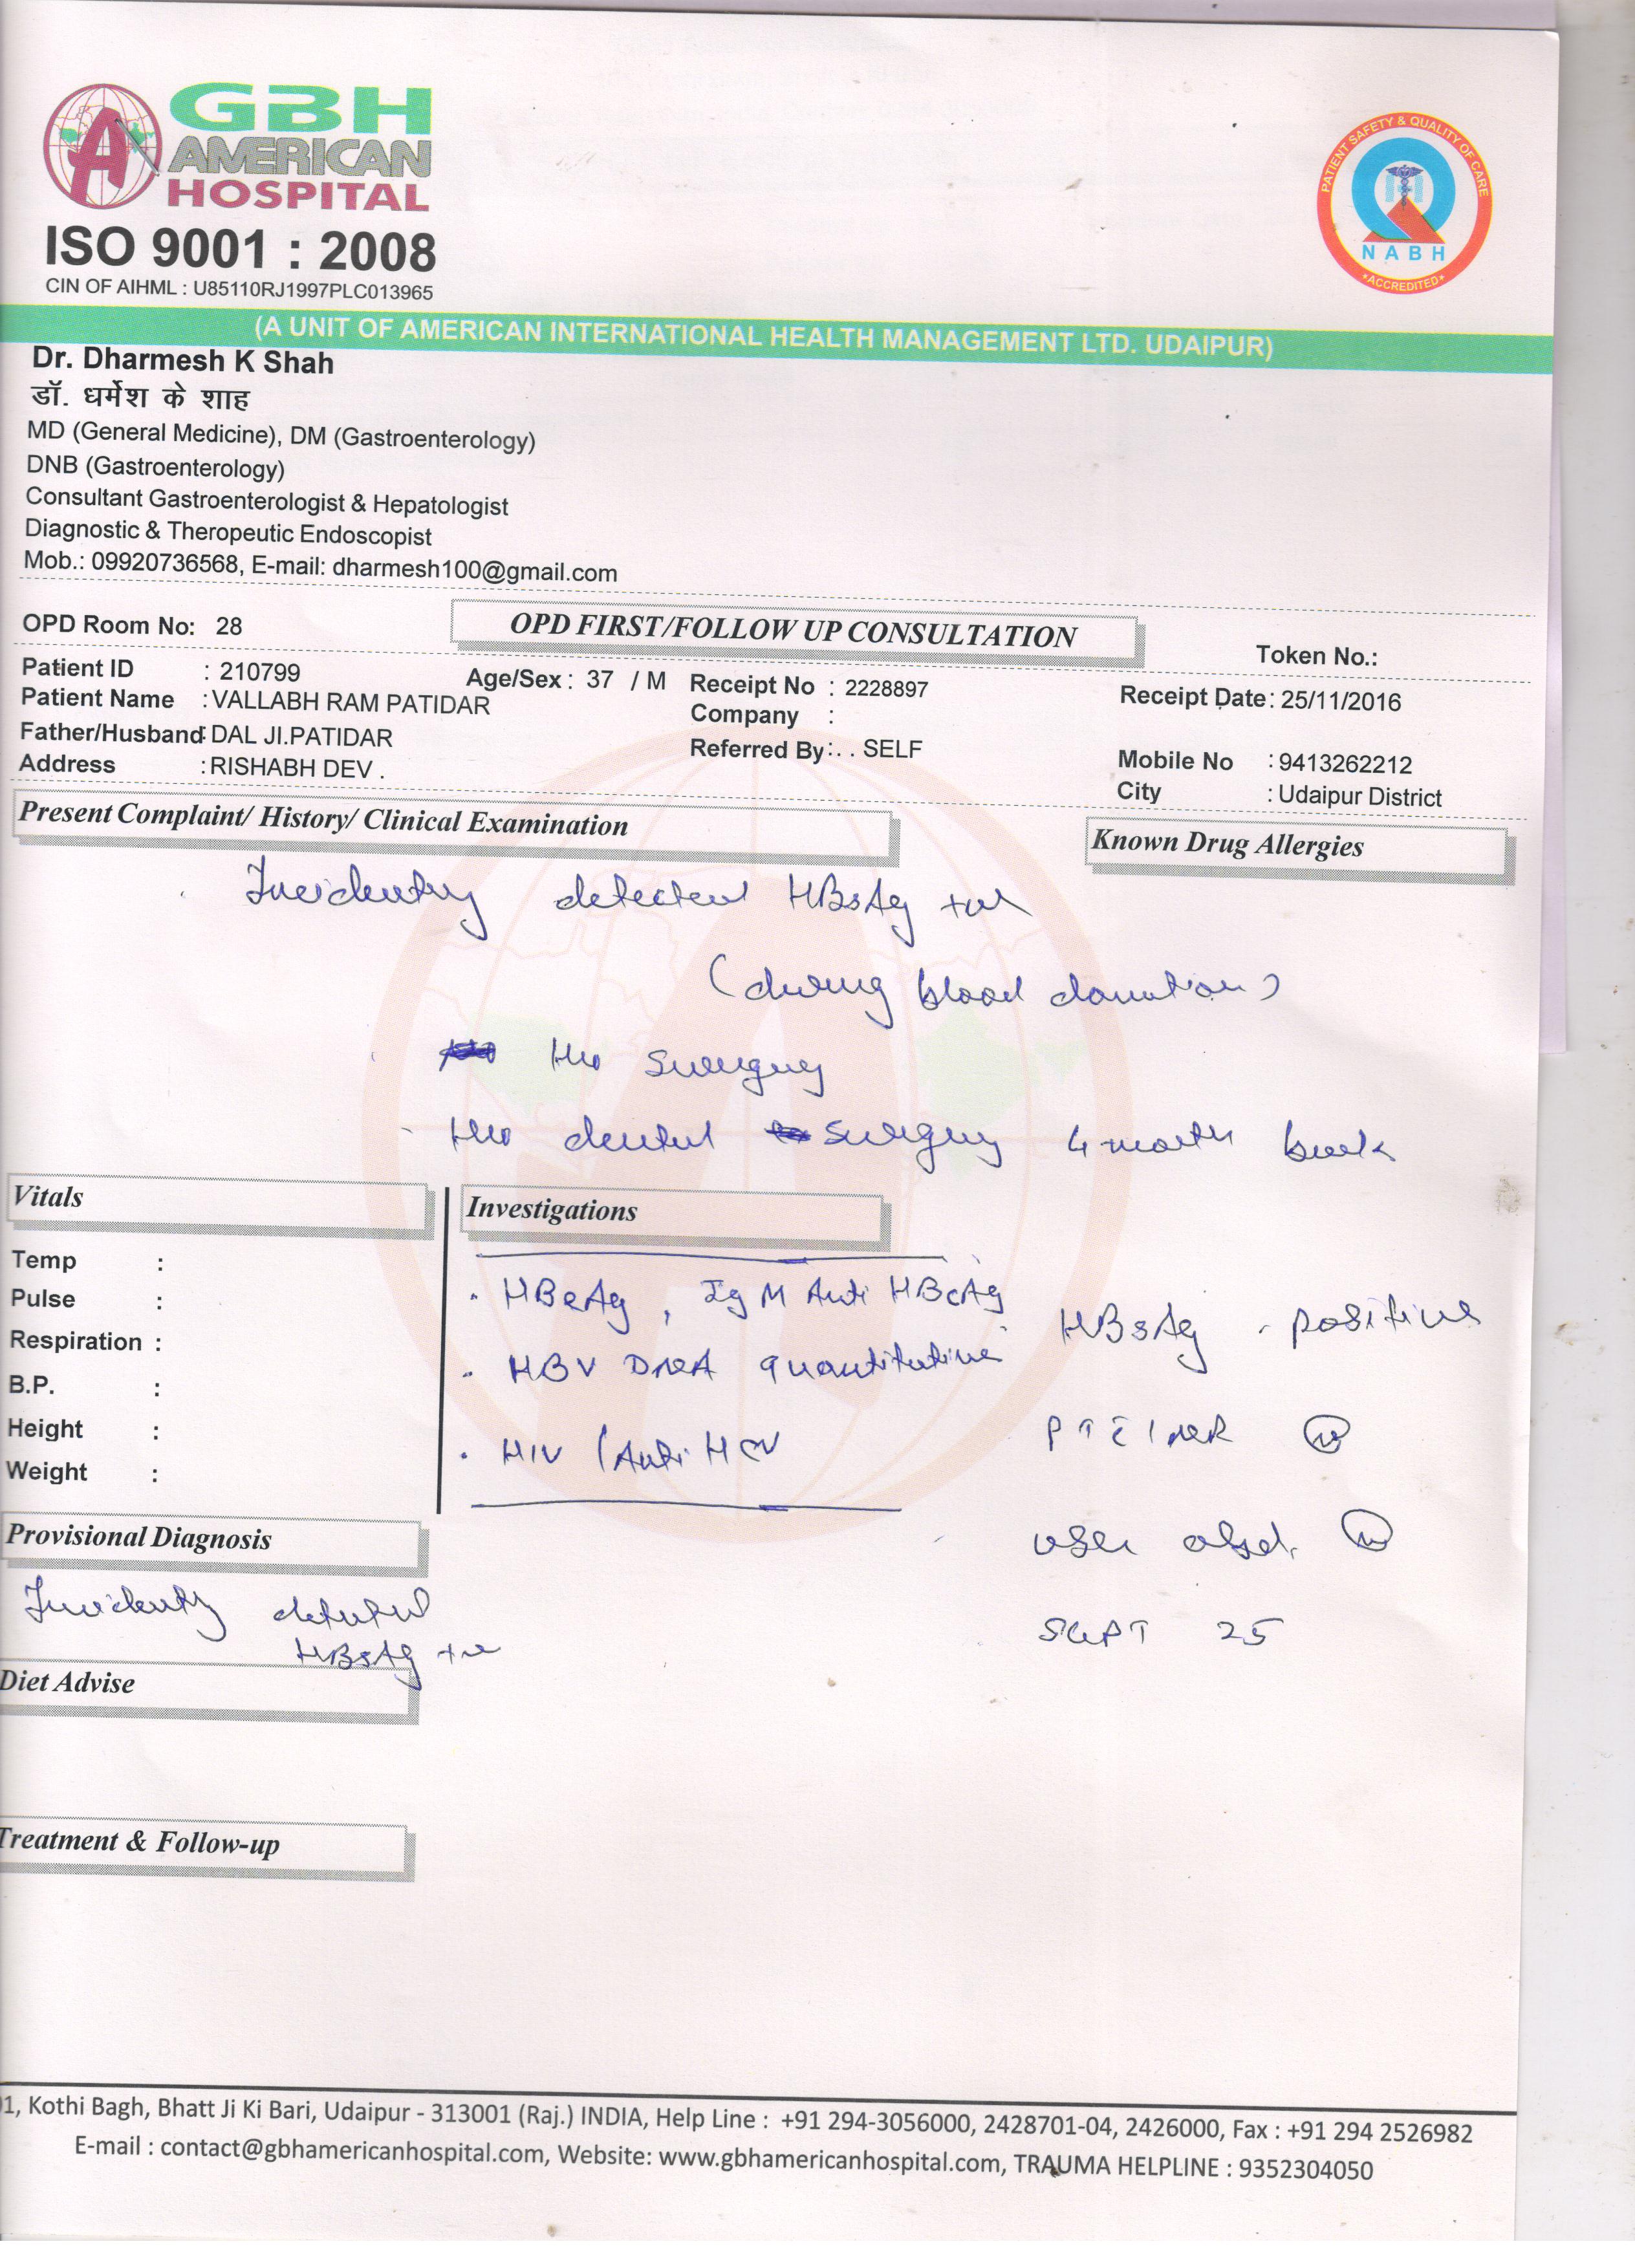 GBH
AMERICAN
HOSPITAL
ISO 9001 : 2008
CIN OF AIHML : U85110RJ1997PLC013965
PATIENT SAFETY & QUALITY OF CARE
NABH
*ACCREDITED*
(A UNIT OF AMERICAN INTERNATIONAL HEALTH MANAGEMENT LTD. UDAIPUR)
Dr. Dharmesh K Shah
डॉ. धर्मेश के शाह
MD (General Medicine), DM (Gastroenterology)
DNB (Gastroenterology)
Consultant Gastroenterologist & Hepatologist
Diagnostic & Theropeutic Endoscopist
Mob.: 09920736568, E-mail: dharmesh100@gmail.com
OPD Room No: 28 OPD FIRST/FOLLOW UP CONSULTATION Token No.:
Patient ID : 210799 Age/Sex : 37 / M Receipt No : 2228897 Receipt Date: 25/11/2016
Patient Name : VALLABH RAM PATIDAR Company :
Father/Husband: DAL JI.PATIDAR Referred By : . . SELF Mobile No : 9413262212
Address : RISHABH DEV . City : Udaipur District
Present Complaint/ History/ Clinical Examination Known Drug Allergies
detected HBsAg +ve
(during blood donation)
H/o Surgery
H/o dental surgery 4 month back
Vitals Investigations
Temp :
Pulse :
Respiration :
B.P. :
Height :
Weight :
. HBeAg , IgM Anti HBcAg
. HBV DNA quantitative
. HIV / Anti HCV
HBsAg - positive
PT INR N
USG abd. N
SGPT 25
Provisional Diagnosis
detected
HBsAg +ve
Diet Advise
Treatment & Follow-up
01, Kothi Bagh, Bhatt Ji Ki Bari, Udaipur - 313001 (Raj.) INDIA, Help Line : +91 294-3056000, 2428701-04, 2426000, Fax : +91 294 2526982
E-mail : contact@gbhamericanhospital.com, Website: www.gbhamericanhospital.com, TRAUMA HELPLINE : 9352304050